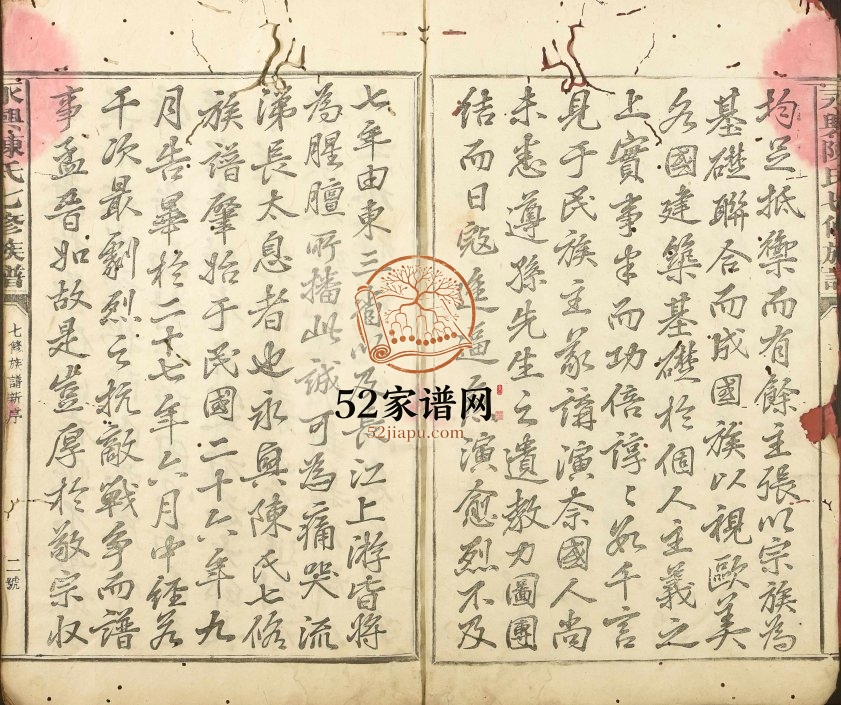 永興陳氏七修族譜
均足抵禦而有餘主張以宗族為
基礎聯合而成國族以視歐美
各國建築基礎於個人主義之
上實事半而功倍諄〻數千言
見于民族主義講演奈國人尚
未悉遵孫先生之遺教力圖團
結而日寇進逼演愈烈不及
七年由東三省以及長江上游皆將
為腥膻所播此誠可為痛哭流
涕長太息者也永興陳氏七修
族譜肇始于民國二十六年九
月告畢於二十七年六月中經若
干次最劇烈之抗敵戰爭而譜
事孟晉如故是豈厚於敬宗收
永興陳氏七修族譜
七修族譜新序
二號
52家谱网
52jiapu.com